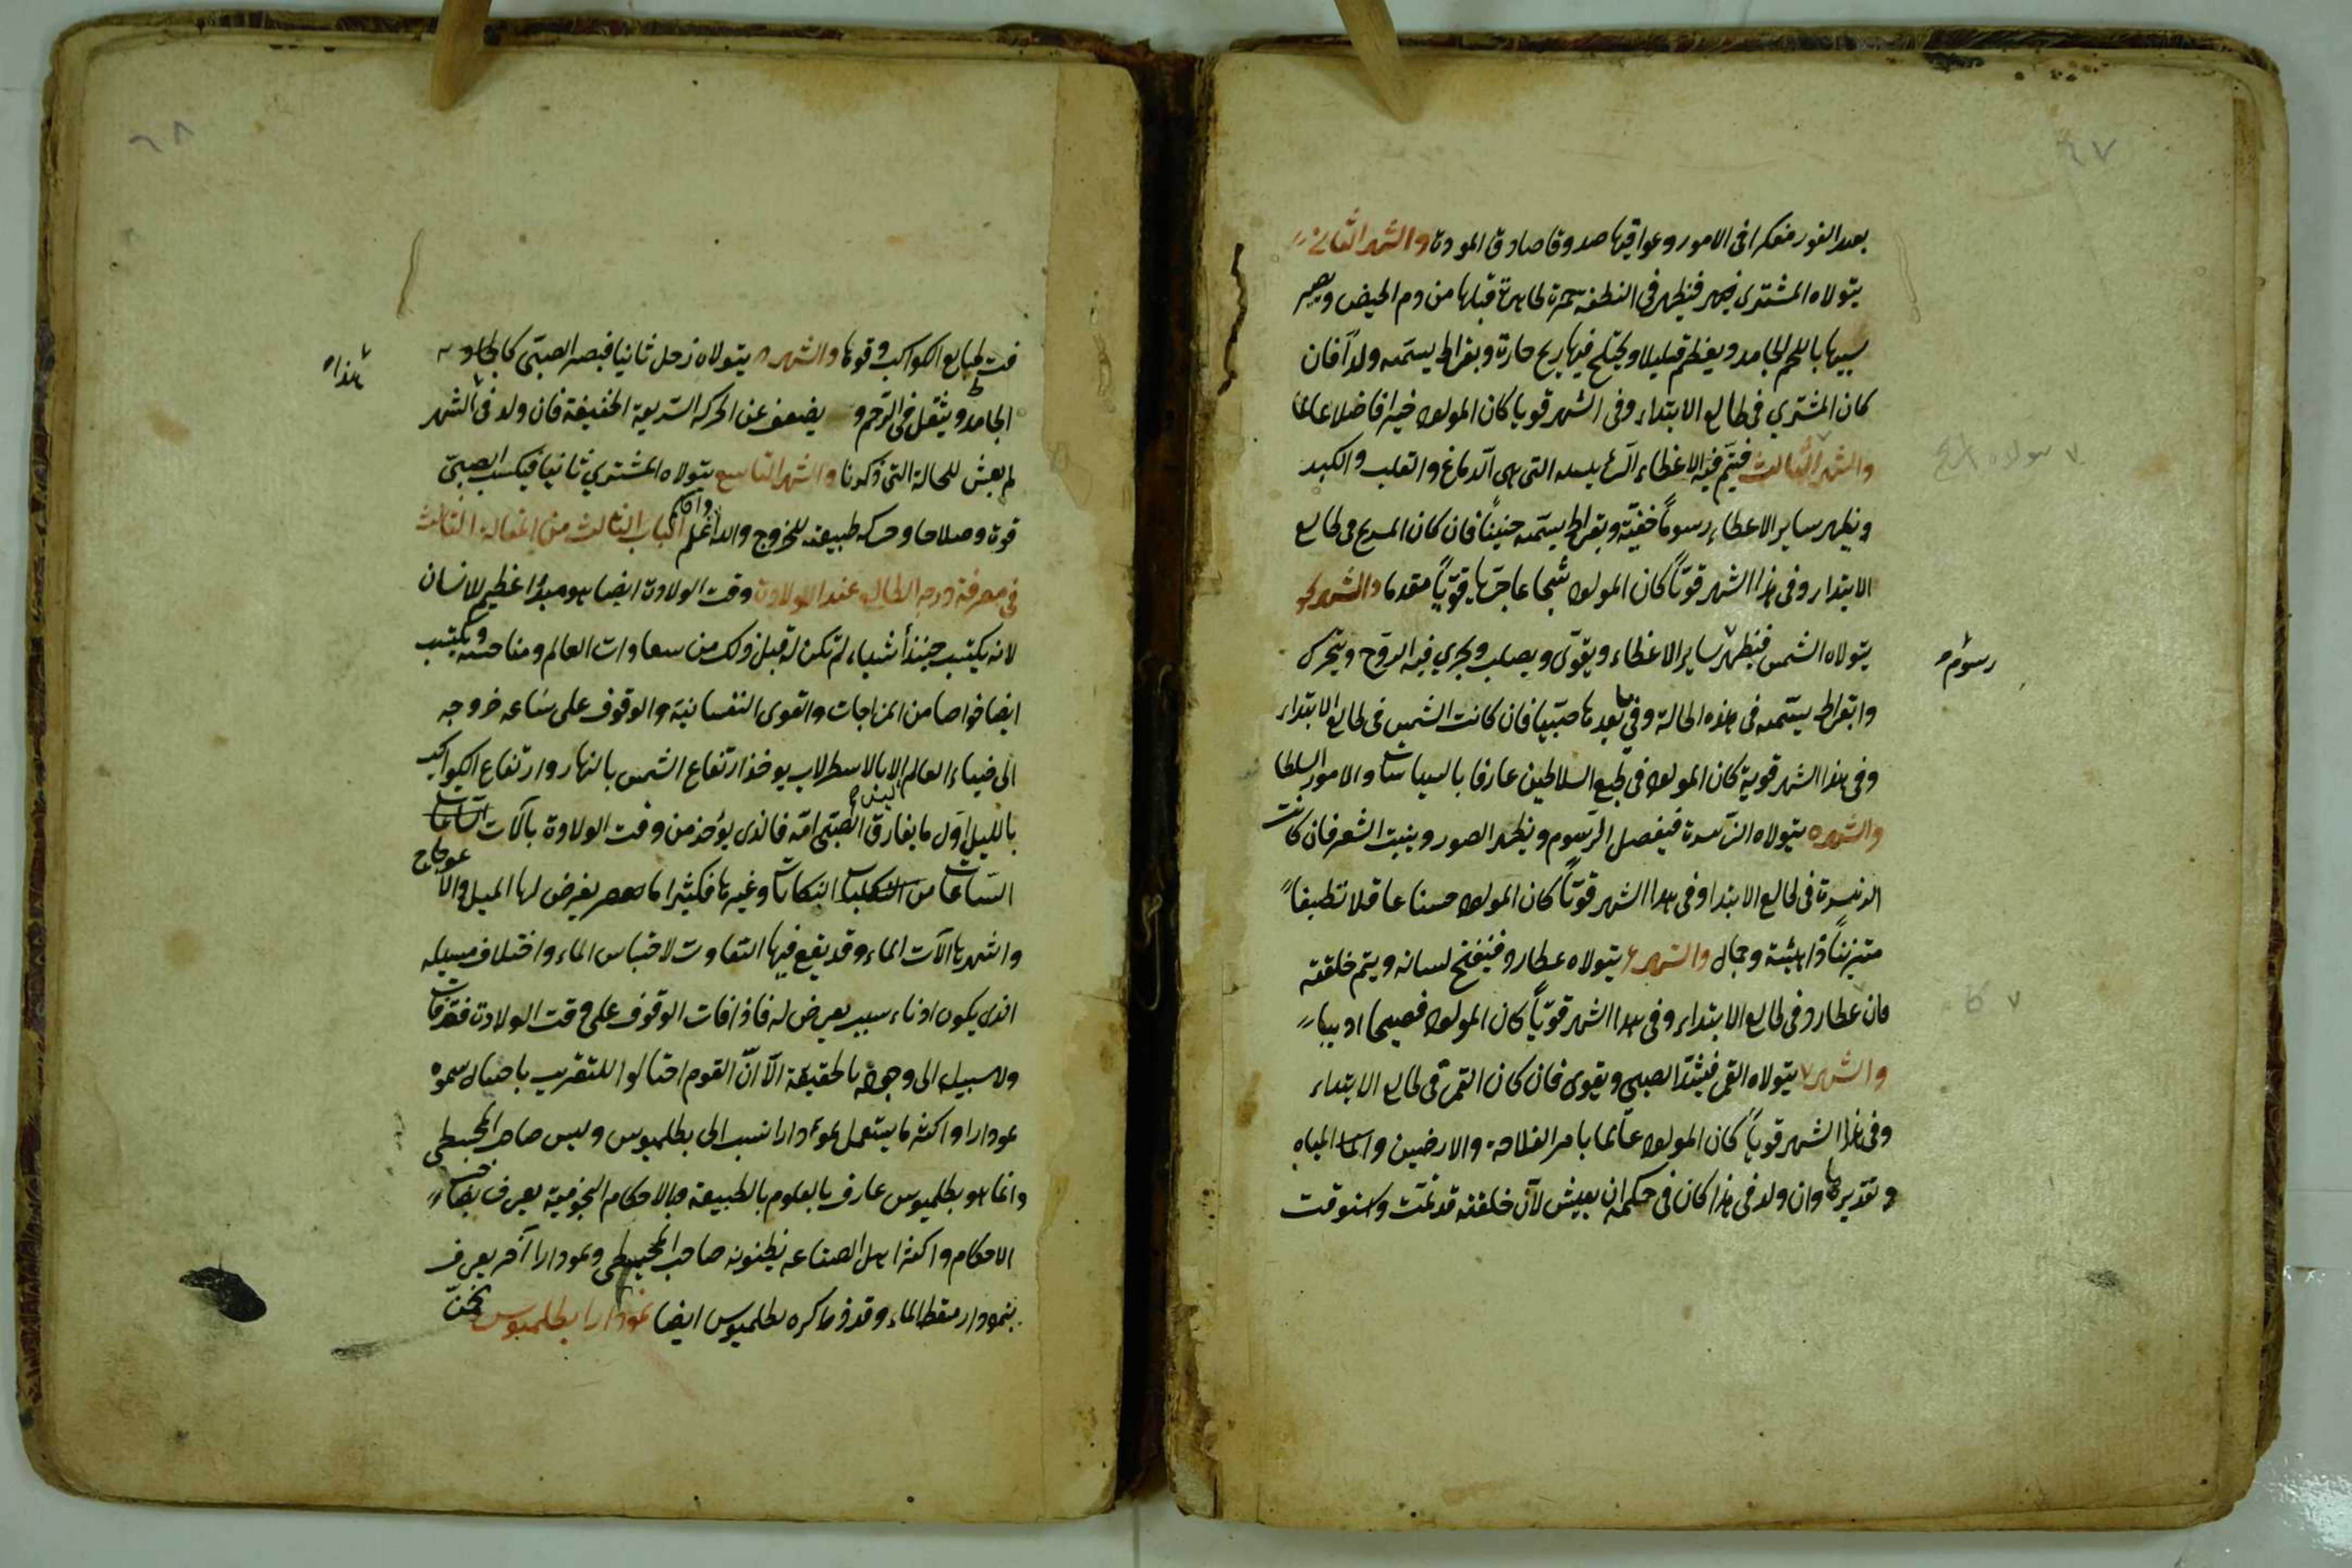 ٤٧
بعيد الغور مفكرا فى الامور وعواقبها صدوقا صادق المودة والشهر الثانى
يتولاه المشترى فيظهر فى النطفة حمرة ظاهرة قبلها من دم الحيض ويصير
سبيها باللحم الجامد ويعظم قليلا ويختلج فيها ريح حارة وبقراط يسمّيه ولدا فان
كان المشتري فى طالع الابتداء وفى الشهر قويا كان المولود خيرا فاضلا عالما
والشهر الثالث فيتم فيه الاعظاء الرئيسه التى هى الدماغ والقلب والكبد
ويظهر ساير الاعظاء رسوماً خفيّة وبقراط يسمّيه جنيناً فان كان المريخ فى طالع
الابتداء وفى هذا الشهر قويّاً كان المولود شجاعا قويّاً مقدما والشهر
يتولاه الشمس فيظهر ساير الاعظاء ويقوّى ويصلب ويجري فيه الروح ويتحرك
رسوم
وابقراط يسمّيه فى هذه الحالة وفى ما بعدها صبّيا فان كانت الشمس فى طالع الابتداء
وفى هذا الشهر قوية كان المولود فى طبع السلاطين عارفا بالسياسات والامور السلطا
والشهر ٥ يتولاه الزّهرة فيفصل الرّسوم ويظهر الصور وينبت الشعر فان كانت
الزهرة فى طالع الابتدا وفى هذا الشهر قويّاً كان المولود حسنا عاقلا نظيفاً
متزيناً ذا هيئة وجمال والشهر ٦ يتولاه عطارد فينفتح لسانه ويتم خلقته
فان عطارد فى طالع الابتداء وفى هذا الشهر قويّاً كان المولود فصيحا اديبا
والشهر ٧ يتولاه القمر فيشتدّ الصبى ويقوى فان كان القمر فى طالع الابتداء
وفى هذا الشهر قوياً كان المولود عالما بامر الفلاحة والارضين المياه
وتقديرها وان ولد فى هذا كان فى حكمه ان يعيش لأن خلقته قد تمّت واستوفت
٦٨
فت طبايع الكواكب وقوتها والشهر ٨ يتولاه زحل ثانيا فيصير الصبّى
هذا
الجامد ويثقل فى الرّحم و يضعف عن الحركه السّريعة الخفيفة فان ولد فى الشهر
لم يعش للحالة التى ذكرنا والشهر التاسع يتولاه المشتري ثانيا فيكسب الصبىّ
قوة وصلاحا وحركه طبيعيه للخروج والله اعلم واحكم الباب الثالث من المقالة الثالث
فى معرفة درجه الطالع عند الولادة وقت الولادة ايضا هو مبدؤ اعظيم للانسان
لانه يكتسب حينئذ أشياء لم تكن له قبل ذلك من سعادات العالم ومناحسه ويكتسب
ايضا خواصا من المزاجات والقوى النفسانية والوقوف على ساعه خروجه
الى ضياء العالم الا بالاسطرلاب يوخذ ارتفاع الشمس بالنهار وارتفاع الكواكب
بالليل اول ما يفارق الصبّى امّه فالذى يؤخذ من وقت الولادة بآلات الساعات
السّاعات من البنكانات وغيرها فكثيرا ما يعرض لها الميل والاعوجاج
واشهرها الآت الماء وقد يقع فيها التفاوت لاحتباس الماء واختلاف مسيله
الذى يكون ادناء سبب يعرض له فاذا فات الوقوف على وقت الولادة فقد فات
ولا سبيل الى وجوده بالحقيقة الّا انّ القوم احتالوا للتقريب باحتال سموه
نمودارا واكثر ما يستعمل نمودارا نسب الى بطلميوس وليس صاحب المجسطى
وانما هو بطلميوس عارف بالعلوم بالطبيعة وبالاحكام النجومية يعرف
الاحكام واكثر اهل الصناعه يظنونه صاحب المجسطى ونمودارا آخر يعرف
بنمودار مسقط الماء وقد ذكره بطلميوس ايضا نمودارا بطلميوس